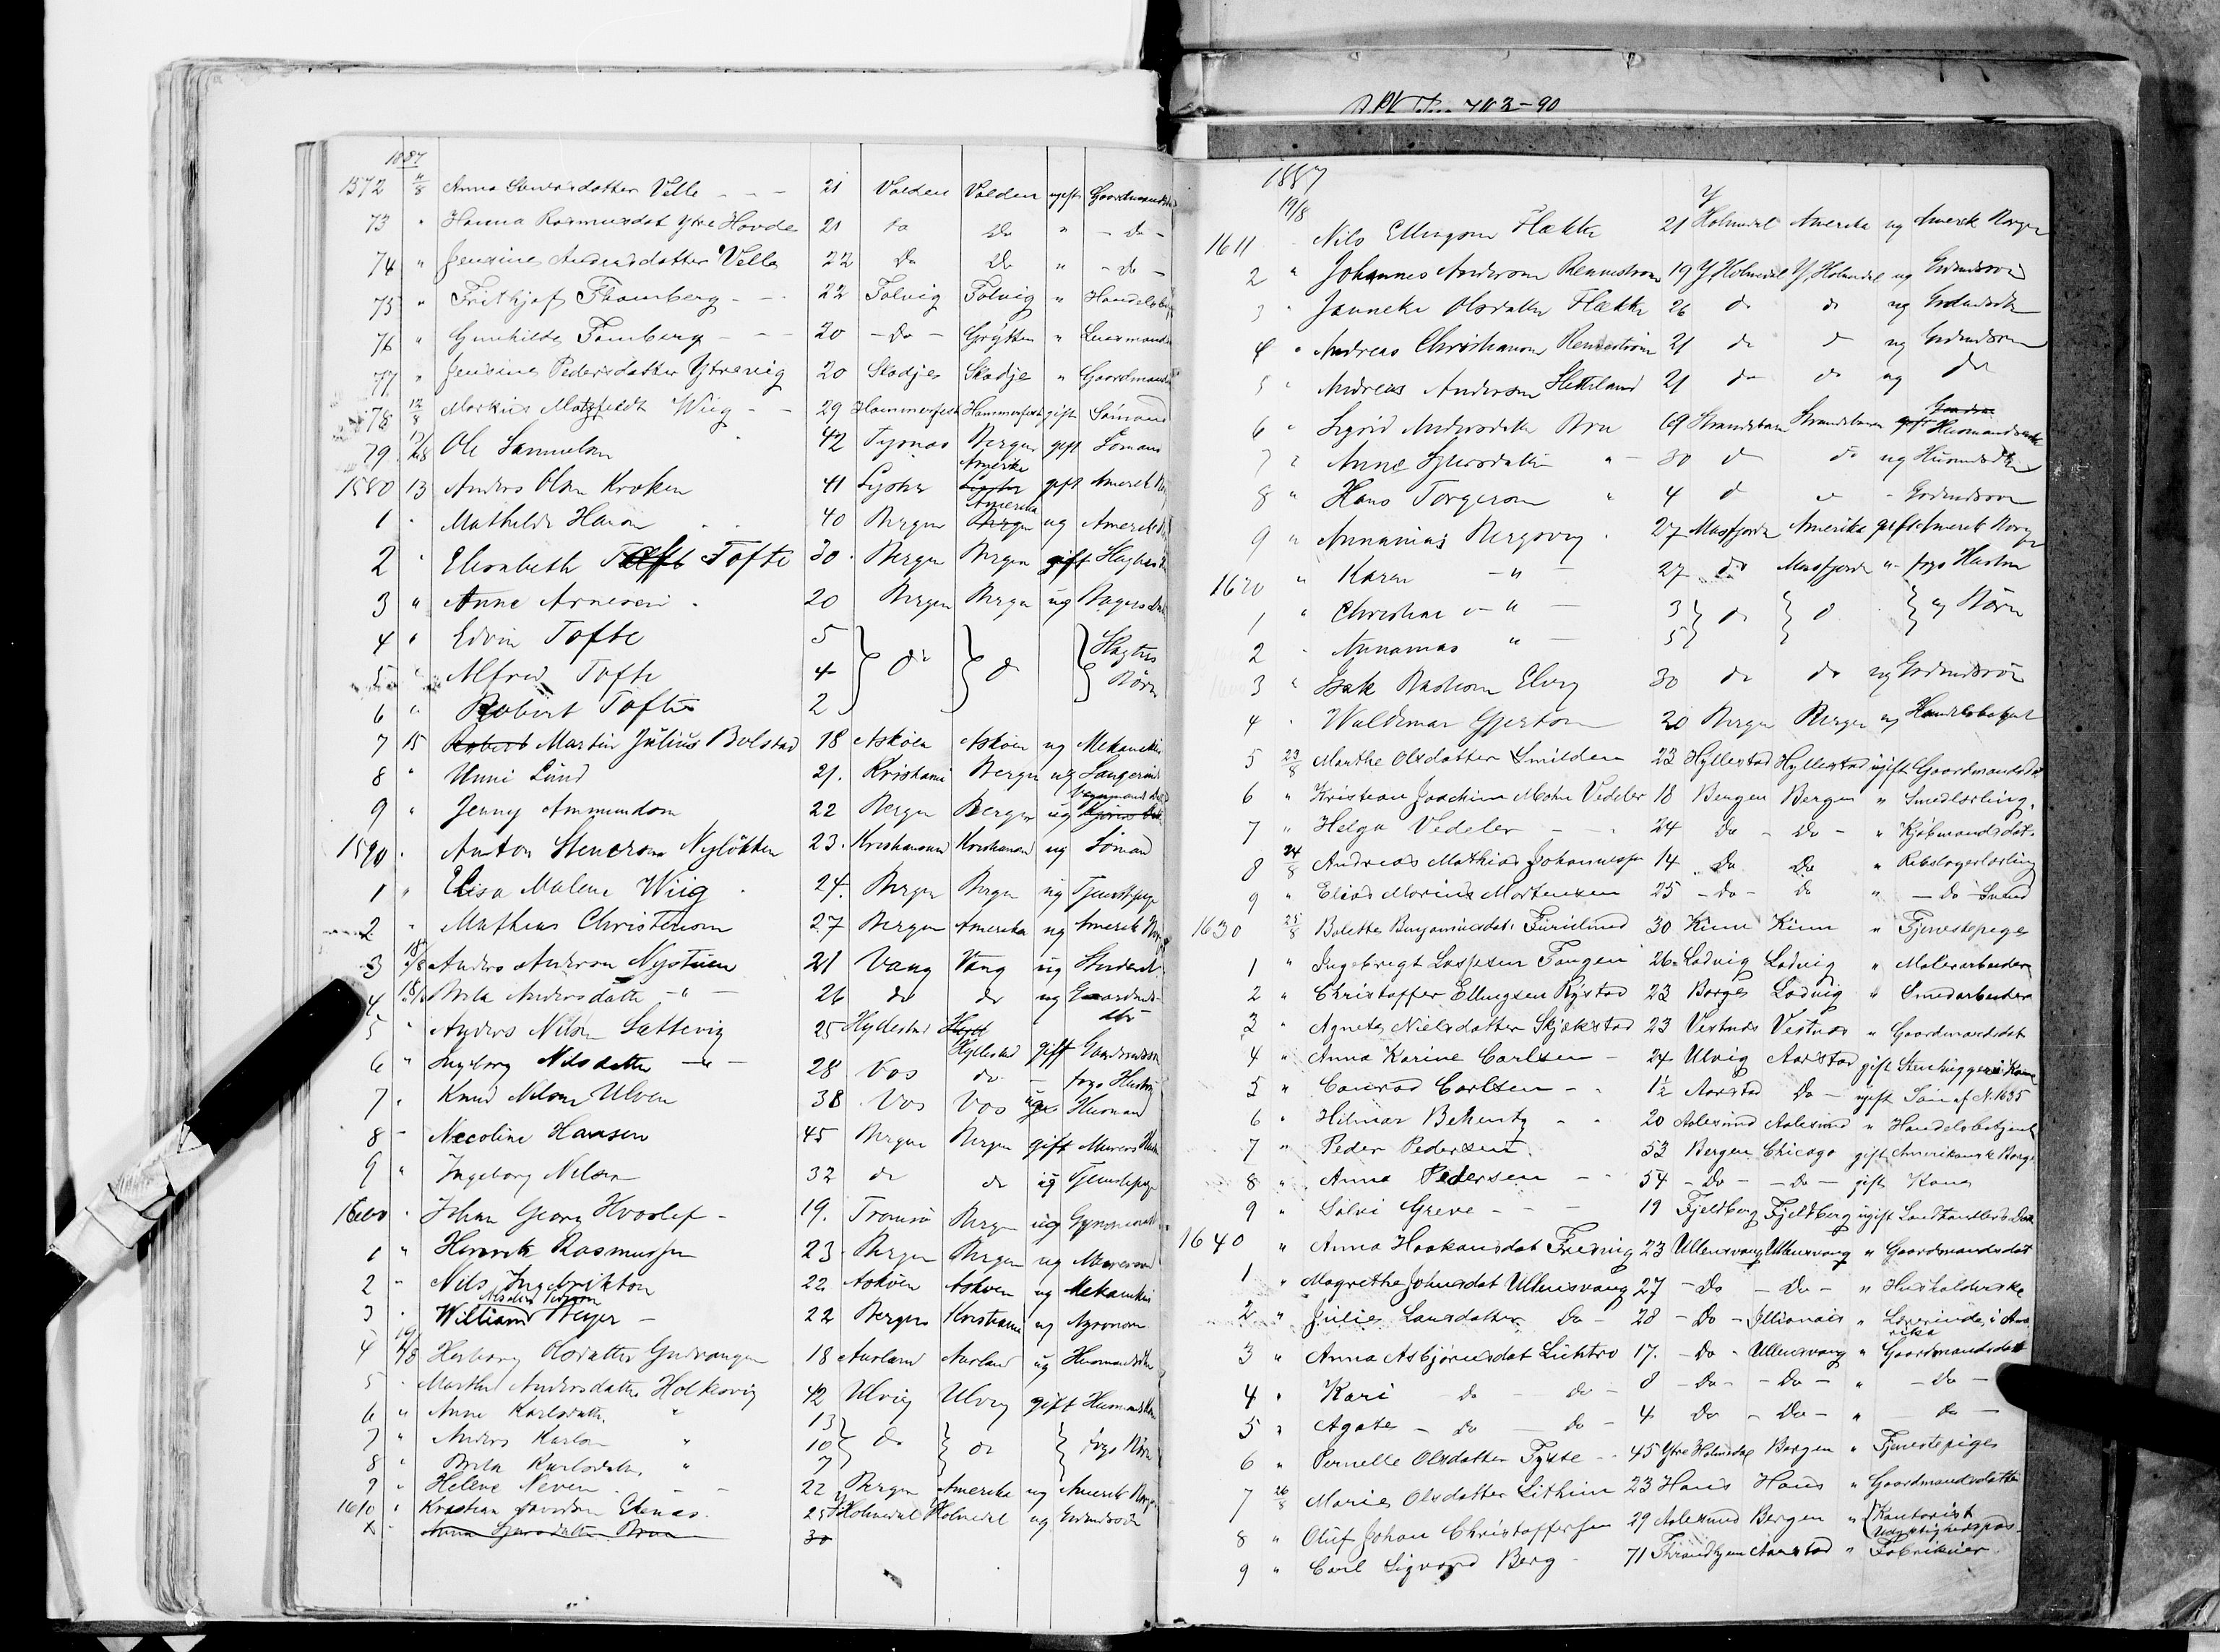 1887
1572 11/8 Anna Larsdatter Velle - - - 21 Volden Volden ugift Gaardmandsdat
73 " Hanna Rasmusdat Ytre Hovde 21 Do Do " - Do -
74 " Jensine Andersdatter Velle 22 Do Do " - Do -
75 " Frithjof Thomberg - - 22 Tolvig Tolvig " Handelsbetj
76 " Gunhilde Tomberg - - 20 - Do - Grytten " Lensmandsd
77 " Jensine Pedersdatter Ytrevig 20 Skodje Skodje " Gaardmands
78 12/8 Markus Wiig - - 29 Hammerfest Hammerfest gift Sømand
79 12/8 Ole Samuelsen 42 Tysnæs Bergen gift Sømand
1580 13 Anders Olsen Kroken 41 Lyster Amerika gift Amerik No
1 " Mathilde 40 Bergen Amerika ug Amerik
2 " Elisabeth Tofte 30 Bergen Bergen gift
3 " Anne Arnesen 20 Bergen Bergen ug Bagers Dat
4 " Edvin Tofte 5 do do
5 " Alfred Tofte 4 Børn
6 " Robert Tofte 2
7 15 Martin Julius Bolstad 18 Askøen Askøen ug Mekaniker
8 " Unni Lund 21. Kristiania Bergen ug Sangerinde
9 " Jenny Ammundsen 22 Bergen Bergen ug
1590 " Anton Stenersen Nyløkken 23. Kristiansund Kristiansund ug Sømand
1 " Elisa Malene Wiig 24. Bergen Bergen ug Tjenestpige
2 " Mathias Christensen 27 Bergen Amerika ug Amerik Nor
3 18/8 Anders Anderson Nystuen 21 Vang Vang ug Student
4 18/8 Brita Andersdatter - " - 26 do do ug Gaardmds dtr
5 " Anders Nilsen Sættevig 25 Hyllestad Hyllestad gift Gaardmdssøn
6 " Ingborg Nilsdatter - " - 28 Vos do - frgs Hustru
7 " Knud Nelson Ulven 38 Vos Vos ug Husmand
8 " Nicoline Hansen 45 Bergen Bergen gift Murers Hust
9 " Ingeborg Nilsen 32 do do ug Tjenestepige
1600 " Johan Georg Hvoslef - 19. Tromsø Bergen ug
1 " Henrik Rasmussen 23 Bergen Bergen ug
2 " Nils Ingebriktson 22 Askøen Askøen ug Mekaniker
3 " William Beyer - 22 Bergen Kristiania ug Agronom
4 19/8 Herborg Olsdatter Gudvangen 18 Aurland Aurland ug Husmandsdtr
5 " Martha Andersdatter Holkevig 42 Ulvig Ulvig gift Husmands
6 " Anne Karlsdatter " 13
7 " Anders Karlsen " 10 do do frgs Børn
8 " Brita Karlsdatter " 7
9 " Helene Neven - - 22 Bergen Amerika ug Amerik Norge
1610 " Kristian Stenæs. 25 Y Holmedal Holmedal ug Grdmdssøn
x " Anna Sjursdatter Bruu 30
1887
19/8
1611 " Nils Ellingsen Flekke 21 Y Holmedal Amerika ug Amerik Norge
2 " Johannes Andersen Rennestrøm 19 Y Holmedal Y Holmedal ug Grdmdssøn
3 " Janneke Olsdatter Flekke 26 do do ug Grdmdsdtr
4 " Andreas Christiansen Rennestrøm 21 do do ug Grdmdssøn
5 " Andreas Andersen Sletteland 21 do do ug do
6 " Sigrid Andersdatter Bru 69 Strandebarm Strandebarm gift Husmandsenke
7 " Anne Sjursdatter " - 30 do do ug Husmdsdtr
8 " Hans Torgersen " 4 do do - Grdmdssøn
9 " Annanias Bergsvig 27 Masfjorden Amerika gift Amerik Norge
1620 " Karen - " - 27 do Masfjorden " frgs Hustru
1 " Christine - " - 3 do do ug Børn
2 " Annanias " - 5
3 " Isak Elvig 30 do do ug Grdmdssøn
4 " Waldemar Gjertsen 20 Bergen Bergen ug Handelsbetjent
5 23/8 Marthe Olsdatter Smilden 23 Hyllestad Hyllestad ugift Gaardmandsdat
6 " Kristian Joachim Mohn Vedeler 18 Bergen Bergen " Smedlærling.
7 " Helga Vedeler - - 24 Do - Do - " Kjøbmandsdat.
8 24/8 Andreas Mathias Johannessen 14 Do Do " Rebslagerlærling
9 " Elias Marius Mortensen 25 - Do - Do " - Do Svend
1630 25/8 Bolette Benjaminsdat. Furulund 30 Kinn Kinn " Tjenestepige
1 " Ingebrigt Laspesen Tangen 26 Ladvig Ladvig " Malerarbeider
2 " Christoffer Ellingsen Rystad 23 Borges Ladvig " Smedarbeider
3 " Agnete Nielsdatter Skjækstad 23 Vestnæs Vestnæs " Gaardmandsdat
4 " Anna Karine Carlsen - 24 Ulvig Aarstad gift Stenhuggeri Kone
5 " Conrad Carlsen - - 1½ Aarstad Do - ugift Søn af N. 1635
6 " Hilmar Behentz - - 20 Aalesund Aalesund " Handelsbetjent
7 " Peder Pedersen 53 Bergen Chicago gift Amerikansk Borger
8 " Anna Pedersen - - 54 - Do - - Do - gift Kone
9 " Solvi Greve - - - 19 Fjeldberg Fjeldberg ugift Landhandlers Dat
1640 " Anna Haakonsdat Freding 23 Ullensvang Ullensvang " Gaardmandsdat
1 " Magrethe Johnsdat Ullensvang 27 - Do - Do - " Husholderske
2 " Julie Larsdatter Do - 28 - Do - Illionais " Lærerinde i Ame rika
3 " Anna Asbjørnsdat Lichtro 17. - Do - Ullensvang " Gaardmandsdat
4 " Kari - do - do - 8 - Do - - Do - " - Do -
5 " Agate - do - do - 4 Do - Do - " - Do -
6 " Pernelle Olsdatter Tyste - - 45 Ytre Holmedal Bergen " Tjenestepige
7 26/8 Marie Olsdatter Lithun 23 Haus Haus " Gaardmandsdatter
8 " Oluf Johan Christoffersen 29 Aalesund Bergen " Kontorist
9 " Carl Sigvard Berg - 71 Throndhjem Aarstad " Fabrikier